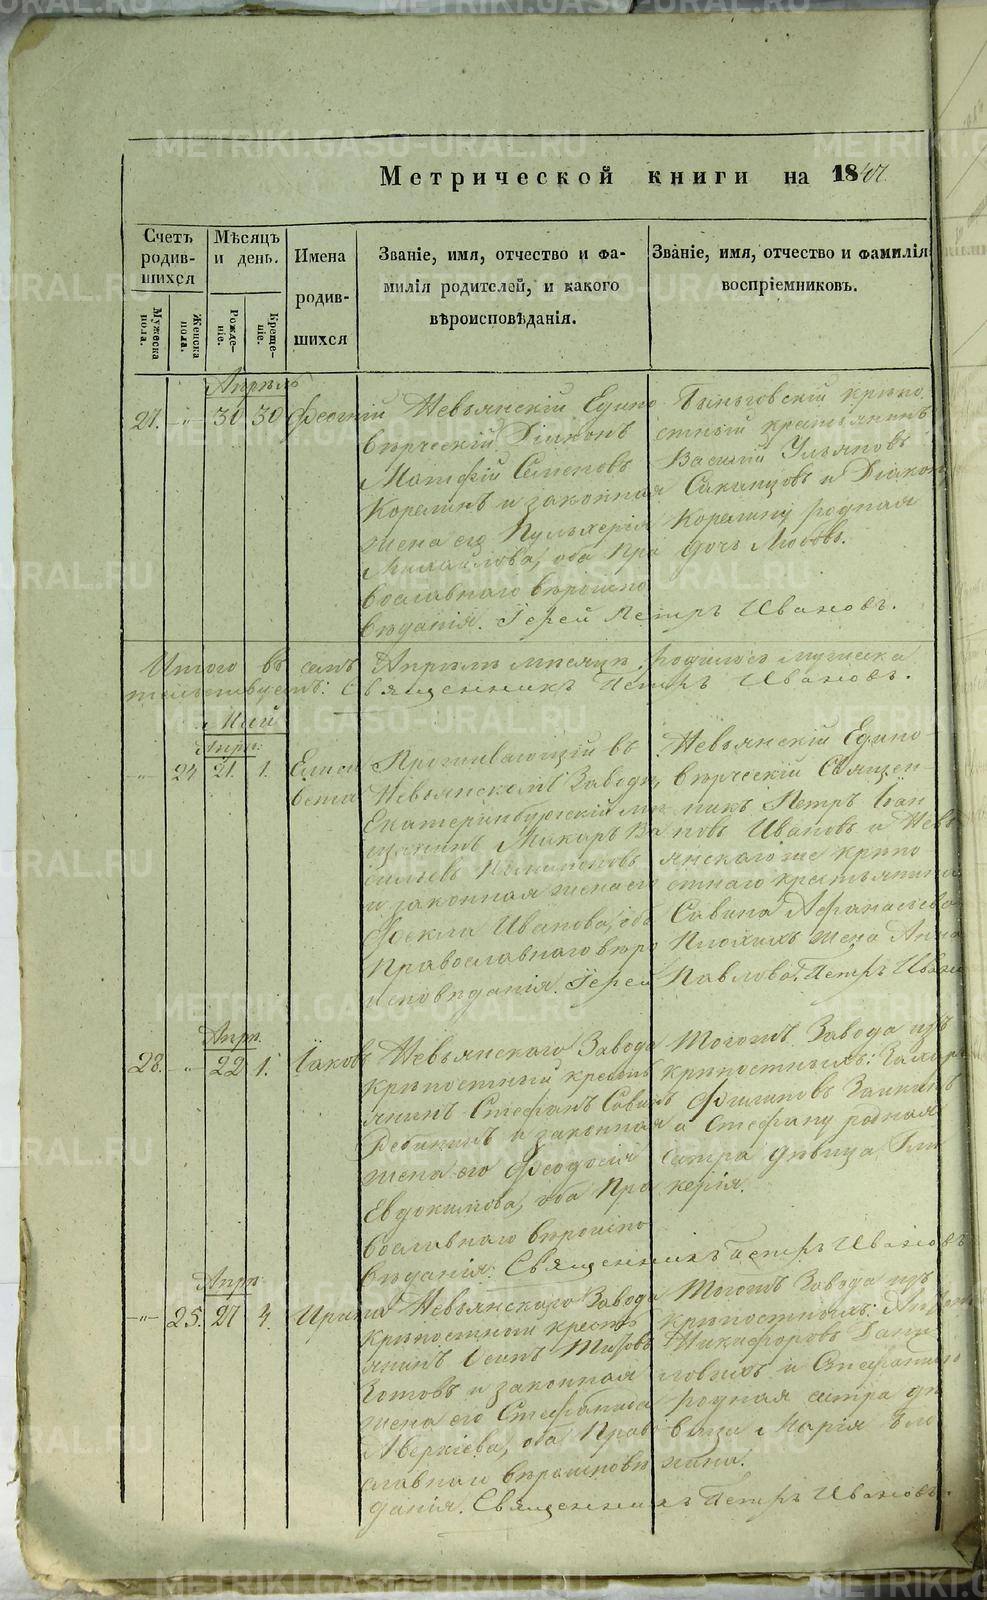 Метрической книги на 18
Счетъ родив-шихся
Мѣсяцъ и день.
Имена родив-шихся
Званіе, имя, отчество и фа-
милія родителей, и какого
вѣроисповѣданія.
Званіе, имя, отчество и фамилія
воспріемниковъ.
Мужеска пола.
Женска пола.
Рожде-ніе.
Креще-ніе.
Апрѣль
27. -"- 30 30
Невьянскій Едино
вѣрческій Діаконъ
Матфій Семеновъ
Корелинъ и законная
жена его Пульхерія
Михайлова, оба Пра
вославнаго вѣроиспо
вѣданія. Іерей Петръ Ивановъ.
крѣпо
стный крестьянинъ
Василій Ульяновъ
и Діакону
Корелину родная
дочь Любовь.
Итого въ семъ Апрѣлѣ мѣсяцѣ родилось мужеска
Священникъ Петръ Ивановъ.
Май
Апрѣ:
-"- 24 21. 1. Елиса
вета
Проживающій въ
Невьянскомъ Заводѣ,
Екатеринбургскій мѣ
щанинъ Макаръ Ва
сильевъ
и законная жена его
Ѳекла Иванова, оба
Православнаго вѣро
исповѣданія. Іерей Петръ Ивано
Невьянскій Едино-
вѣрческій Священ-
никъ Петръ Іоан
новъ Ивановъ и Невь
янскаго же крѣпо
стнаго крестьянина
Савина Афанасьева
Плохихъ жена Анна
Павлова.
Апрѣ.
28. -"- 22 1. Іаковъ
Невьянскаго Завода
крѣпостный кресть
янинъ Стефанъ Савинъ
и законная
жена его Феодосія
Евдокимова, оба Пра
вославнаго вѣроиспо
вѣданія. Священникъ Петръ Ивановъ
Тогожъ Завода изъ
крѣпостныхъ: Захаръ
Филиповъ Заикинъ
а Стефану родная
сестра дѣвица Гли
керія.
Апрѣ.
-"- 25. 27 4. Ирина
Невьянскаго Завода
крѣпостный кресть
янинъ Осипъ Титовъ
Котовъ и законная
жена его Стефанида
Аверкіева, оба Право
славнаго вѣроисповѣ
данія. Священникъ Петръ Ивановъ.
Тогожъ Завода изъ
крѣпостныхъ:
Никифоровъ Дани
ловыхъ и Стефаниды
родная сестра дѣ
вица Марія